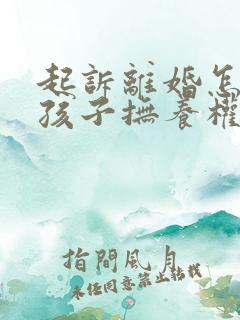 起訴離婚怎
孩子撫養權
指間風月
未经同意禁止转載